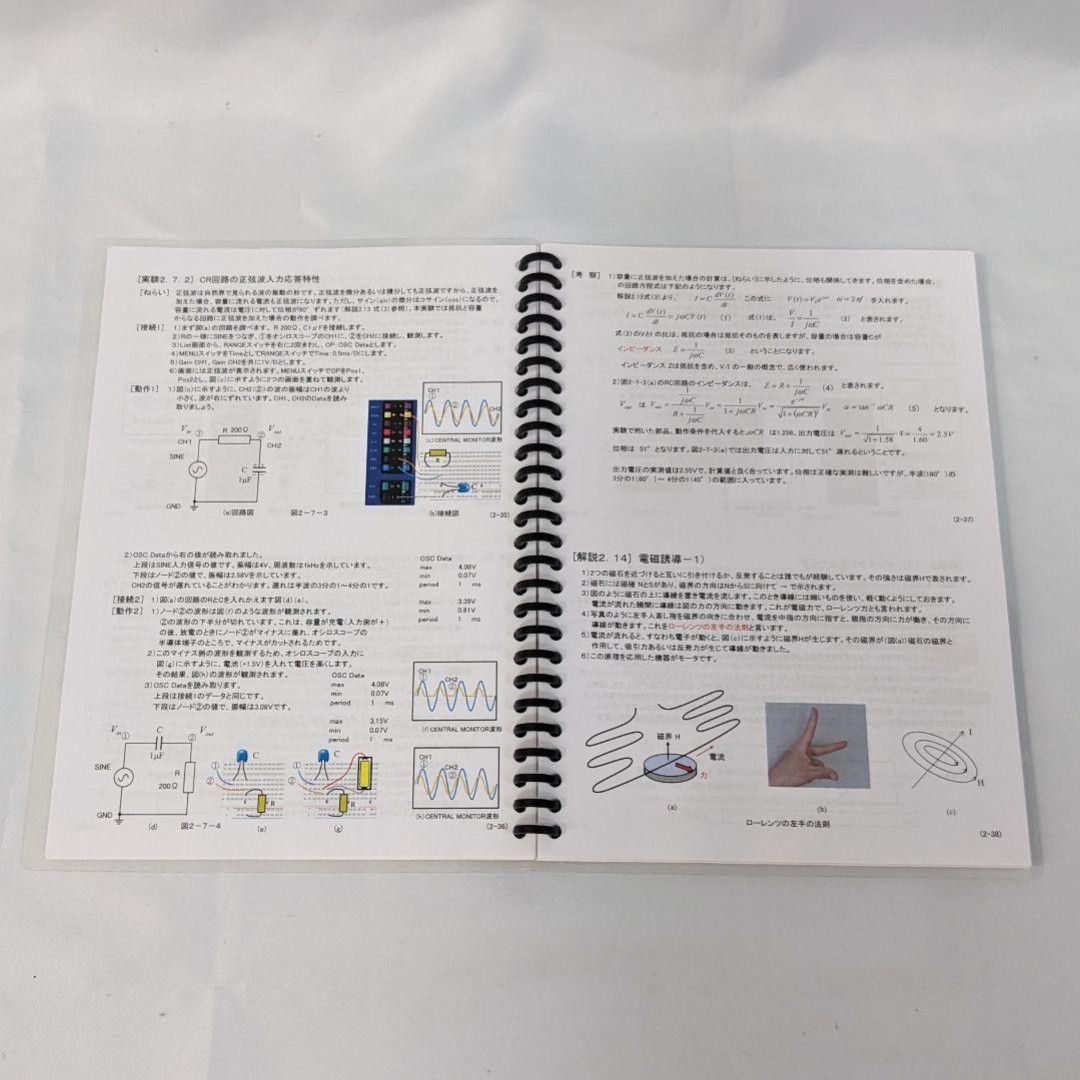 [実験2. 7. 2] CR回路の正弦波入力応答特性
[ねらい] 正弦波は自然界で見られる波の振動の形です。正弦波を微分あるいは積分しても正弦波ですから、正弦波を
加えた場合、容量に流れる電流も正弦波になります。ただし、サイン(sin)の微分はコサイン(cos)になるので、
容量に流れる電流は電圧に対して位相が90° ずれます(解説2.13 式(3)参照)。本実験では抵抗と容量
からなる回路に正弦波を加えた場合の動作を調べます。
[接続1] 1)まず図(a)の回路を調べます。R 200Ω、C1μFを接続します。
2)Rの一端にSINEをつなぎ、①をオシロスコープのCH1に、②をCH2に接続し、観測します。
3)List画面から、RANGEスイッチを右に2回まわし、OP: OSC Dataとします。
4)MENUスイッチをTimeとしてRANGEスイッチでTime: 0.5ms/Dにします。
5)Gain CH1、Gain CH2を共に1V/Dとします。
6)画面には正弦波が表示されます。MENUスイッチでOPをPos1、
Pos2とし、図(c)に示すように2つの画面を重ねて観測します。
[動作1] 1)図(c)に示すように、CH2(②)の波の振幅はCH1の波より
小さく、波が右にずれています。CH1、CH2のDataを読み
取りましょう。
CH1
①
②
CH2
(c)CENTRAL MONITOR波形
Vin ① R 200Ω ② Vout
CH1
CH2
SINE
C
1μF
GND
(a)回路図 図2-7-3
R
C
(b)接続図
(2-35)
2)OSC Dataから右の値が読み取れました。
上段はSINE入力信号の値です。振幅は4V、周波数は1kHzを示しています。
下段はノード②の値で、振幅は2.58Vを示しています。
CH2の信号が遅れていることがわかります。遅れは半波の3分の1～4分の1です。
OSC Data
max 4.08V
min 0.07V
period 1 ms
max 3.39V
min 0.81V
period 1 ms
[接続2] 1)図(a)の回路のRとCを入れかえます図(d)、(e)。
[動作2] 1)ノード②の波形は図(f)のような波形が観測されます。
②の波形の下半分が切れています。これは、容量が充電(入力側が+)
の後、放電のときにノード②がマイナスに振れ、オシロスコープの
半導体端子のところで、マイナスがカットされるためです。
2)このマイナス側の波形を観測するため、オシロスコープの入力に
図(g)に示すように、電池(+1.5V)を入れて電圧を高くします。
その結果、図(h)の波形が観測されます。
3)OSC Dataを読み取ります。
上段は接続1のデータと同じです。
下段はノード②の値で、振幅は3.08Vです。
OSC Data
max 4.08V
min 0.07V
period 1 ms
max 3.15V
min 0.07V
period 1 ms
CH1
①
CH2
②
(f)CENTRAL MONITOR波形
CH1
①
CH2
②
(h)CENTRAL MONITOR波形
Vin ① C ② Vout
1μF
SINE
R
200Ω
GND
(d) 図2-7-4
① C
②
R
(e)
① C
②
R
(g)
(2-36)
[考 察] 1)容量に正弦波を加えた場合の計算は、[ねらい]に示したように、位相も関係してきます。位相を含めた場合、
の回路方程式は下記のようになります。
解説2.13式(3)より、 I=C dV(t)/dt この式に V(t)=V₀e^jωt ω=2πf を入れます。
I=C dV(t)/dt = jωCV(t) (1) 式(1)は、 V/I = 1/jωC (2) と表されます。
式(2)のVとI の比は、抵抗の場合は抵抗そのものを表しますが、容量の場合は容量Cが
インピーダンス Z = 1/jωC (3) ということになります。
インピーダンス Zは抵抗を含め、V/I の一般の概念で、広く使われます。
2)図2-7-3(a)のRC回路のインピーダンスは、 Z = R + 1/jωC (4) と表されます。
Vout は Vout = (1/jωC)/(R + 1/jωC) Vin = 1/(1+jωCR) Vin = e^-jα/√(1+(ωCR)²) Vin α = tan⁻¹ ωCR (5) となります。
実験で用いた部品、動作条件を代入すると、ωCR は1.256、出力電圧は Vout = 1/√(1+1.58) ·4 = 4/1.60 = 2.5V
位相は 51° となります。図2-7-3(a)では出力電圧は入力に対して51° 遅れるということです。
出力電圧の実測値は2.55Vで、計算値と良く合っています。位相は正確な実測は難しいですが、半波(180°)の
3分の1(60°)～ 4分の1(45°)の範囲に入っています。
(2-37)
[解説2. 14] 電磁誘導-1)
1)2つの磁石を近づけると互いに引き付けるか、反発することは誰でもが経験しています。その強さは磁界Hで表されます。
2)磁石には磁極 NとSがあり、磁界の方向はNからSに向くことで示されます。
3)図のように磁石の上に導線を置き電流を流します。このとき導線には細いものを使い、軽く動くようにしておきます。
電流が流れた瞬間に導線は図の力の方向に動きます。これが電磁力で、ローレンツ力とも言われます。
4)写真のように左手人差し指を磁界の向きに合わせ、電流を中指の方向に指すと、親指の方向に力が働き、その方向に
導線が動きます。これをローレンツの左手の法則と言います。
5)電流が流れると、すなわち電子が動くと、図(c)に示すように磁界Hが生じます。その磁界が(図(a))磁石の磁界と
作用して、吸引力あるいは反発力が生じて導線が動きました。
6)この原理を応用した機器がモータです。
磁界 H
電流
力
(a)
(b)
I
H
(c)
ローレンツの左手の法則
(2-38)